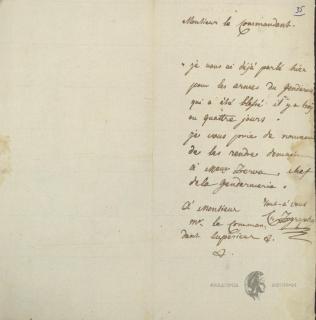 35
Monsieur le Commandant.
je vous ai déjà parlé hier
pour les armes du gendarme
qui a été blessé il y a trois
ou quattre jours.
je vous prie de nouveau
de les rendre demain
à chef
de la Gendarmerie.
Tout-à-vous
A Monsieur
mr. le Comman,
dant Supérieur &.
&.